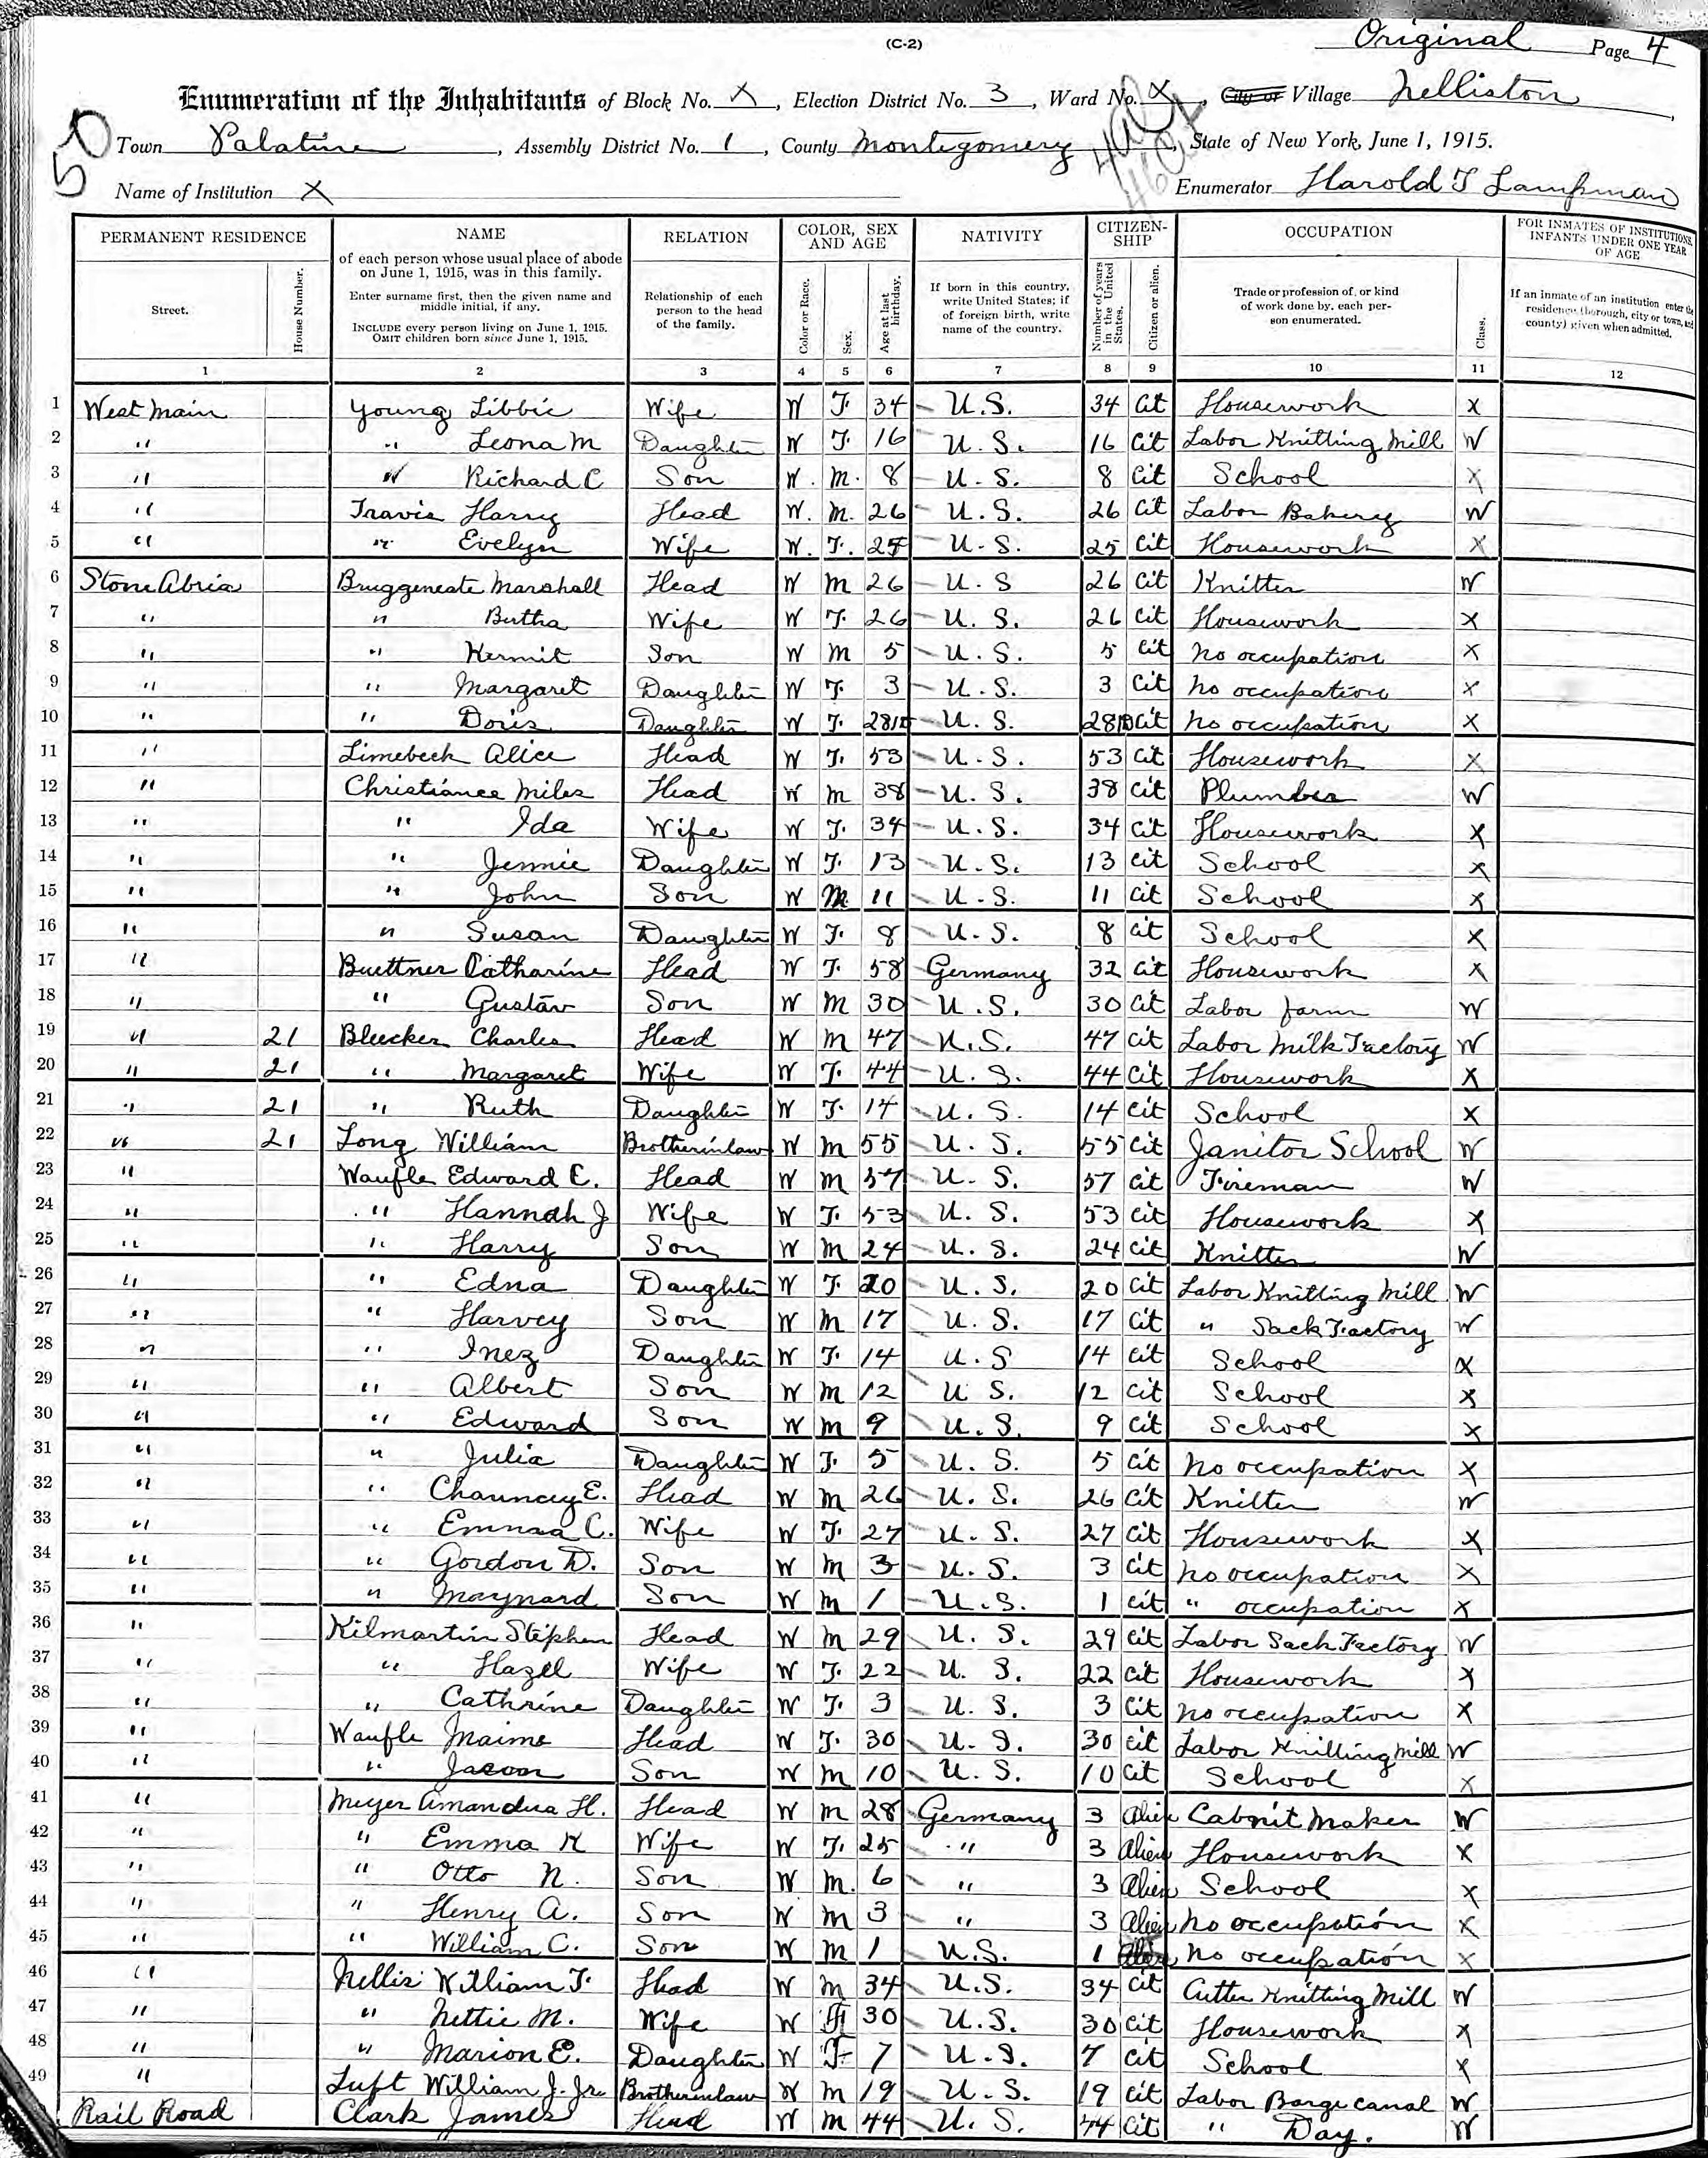 (C-2)
Original Page 4
Enumeration of the Inhabitants of Block No. X, Election District No. 3, Ward No. X, City or Village Nelliston
50
Town Palatine, Assembly District No. 1, County Montgomery, State of New York, June 1, 1915.
Name of Institution X Enumerator Harold T Lampman
PERMANENT RESIDENCE NAME RELATION COLOR, SEX AND AGE NATIVITY CITIZEN-SHIP OCCUPATION FOR INMATES OF INSTITUTIONS, INFANTS UNDER ONE YEAR OF AGE
Street. House Number. of each person whose usual place of abode on June 1, 1915, was in this family. Enter surname first, then the given name and middle initial, if any. INCLUDE every person living on June 1, 1915. OMIT children born since June 1, 1915. Relationship of each person to the head of the family. Color or Race. Sex. Age at last birthday. If born in this country, write United States; if of foreign birth, write name of the country. Number of years in the United States. Citizen or alien. Trade or profession of, or kind of work done by, each person enumerated. Class. If an inmate of an institution enter the residence (borough, city or town, and county) given when admitted.
1 2 3 4 5 6 7 8 9 10 11 12
1 West Main Young Libbie Wife W F. 34 U.S. 34 Cit Housework X
2 " " Leona M Daughter W F. 16 U.S. 16 Cit Labor Knitting Mill W
3 " " Richard C Son W. M. 8 U.S. 8 Cit School X
4 " Travis Harry Head W. M. 26 U.S. 26 Cit Labor Bakery W
5 " " Evelyn Wife W. F. 25 U.S. 25 Cit Housework X
6 Bruggeneate Marshall Head W M 26 U.S 26 Cit Knitter W
7 " " Bertha Wife W F. 26 U.S. 26 Cit Housework X
8 " " Kermit Son W M 5 U.S. 5 Cit No occupation X
9 " " Margaret Daughter W F. 3 U.S. 3 Cit No occupation X
10 " " Doris Daughter W F. U.S. Cit No occupation X
11 " Limebeck Alice Head W F. 53 U.S. 53 Cit Housework X
12 " Christiance Miles Head W M 38 U.S. 38 Cit Plumber W
13 " " Ida Wife W F. 34 U.S. 34 Cit Housework X
14 " " Jennie Daughter W F. 13 U.S. 13 Cit School X
15 " " John Son W M 11 U.S. 11 Cit School X
16 " " Susan Daughter W F. 8 U.S. 8 Cit School X
17 " Buettner Catharine Head W F. 58 Germany 32 Cit Housework X
18 " " Gustav Son W M 30 U.S. 30 Cit Labor farm W
19 " 21 Bleecker Charles Head W M 47 U.S. 47 Cit Labor Milk Factory W
20 " 21 " Margaret Wife W F. 44 U.S. 44 Cit Housework X
21 " 21 " Ruth Daughter W F. 14 U.S. 14 Cit School X
22 " 21 Long William Brotherinlaw W M 55 U.S. 55 Cit Janitor School W
23 " Waufle Edward C. Head W M 57 U.S. 57 Cit Fireman W
24 " " Hannah J Wife W F. 53 U.S. 53 Cit Housework X
25 " " Harry Son W M 24 U.S. 24 Cit Knitter W
26 " " Edna Daughter W F. 20 U.S. 20 Cit Labor Knitting Mill W
27 " " Harvey Son W M 17 U.S. 17 Cit " Sack Factory W
28 " " Inez Daughter W F. 14 U.S 14 Cit School X
29 " " Albert Son W M 12 U S. 12 Cit School X
30 " " Edward Son W M 9 U.S. 9 Cit School X
31 " " Julia Daughter W F. 5 U.S. 5 Cit No occupation X
32 " " Chauncey E. Head W M 26 U.S. 26 Cit Knitter W
33 " " Emma C. Wife W F. 27 U.S. 27 Cit Housework X
34 " " Gordon D. Son W M 3 U.S. 3 Cit No occupation X
35 " " Maynard Son W M 1 U.S. 1 Cit " occupation X
36 " Kilmartin Stephen Head W M 29 U.S. 29 Cit Labor Sack Factory W
37 " " Hazel Wife W F. 22 U.S. 22 Cit Housework X
38 " " Cathrine Daughter W F. 3 U.S. 3 Cit No occupation X
39 " Waufle Maime Head W F. 30 U.S. 30 Cit Labor Knitting Mill W
40 " " Son W M 10 U.S. 10 Cit School X
41 " Meyer Amandus H. Head W M 28 Germany 3 Alien Cabnit Maker W
42 " " Emma K Wife W F. 25 " 3 Alien Housework X
43 " " Otto N. Son W M. 6 " 3 Alien School X
44 " " Henry A. Son W M 3 " 3 Alien No occupation X
45 " " William C. Son W M 1 U.S. 1 Alien No occupation X
46 " Nellis William F. Head W M 34 U.S. 34 Cit Cutter Knitting Mill W
47 " " Nettie M. Wife W F 30 U.S. 30 Cit Housework X
48 " " Marion E. Daughter W F. 7 U.S. 7 Cit School X
49 " Luft William J. Jr. Brotherinlaw W M 19 U.S. 19 Cit Labor Barge canal W
Rail Road Clark James Head W M 44 U.S. 44 Cit " Day. W